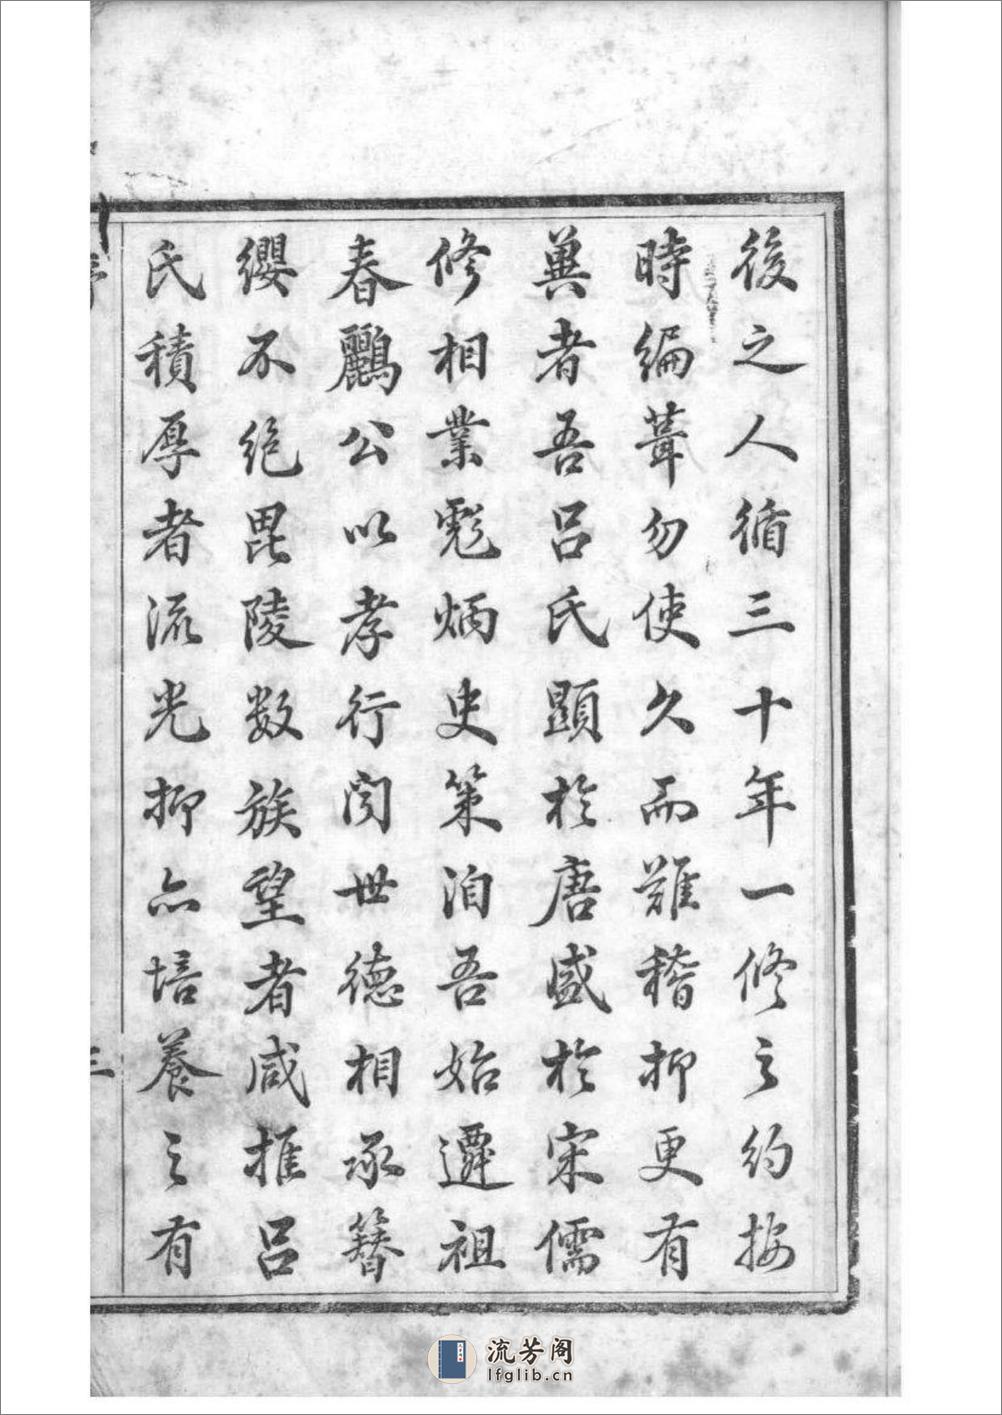 後之人循三十年一修之約按
時編葺勿使久而難稽抑更有
冀者吾呂氏顯於唐盛於宋儒
修相業彪炳史策洎吾始遷祖
春鸝公以孝行聞世德相承簪
纓不絕毘陵數族望者咸推呂
氏積厚者流光抑亦培養之有
序
三
流芳阁
lfglib.cn